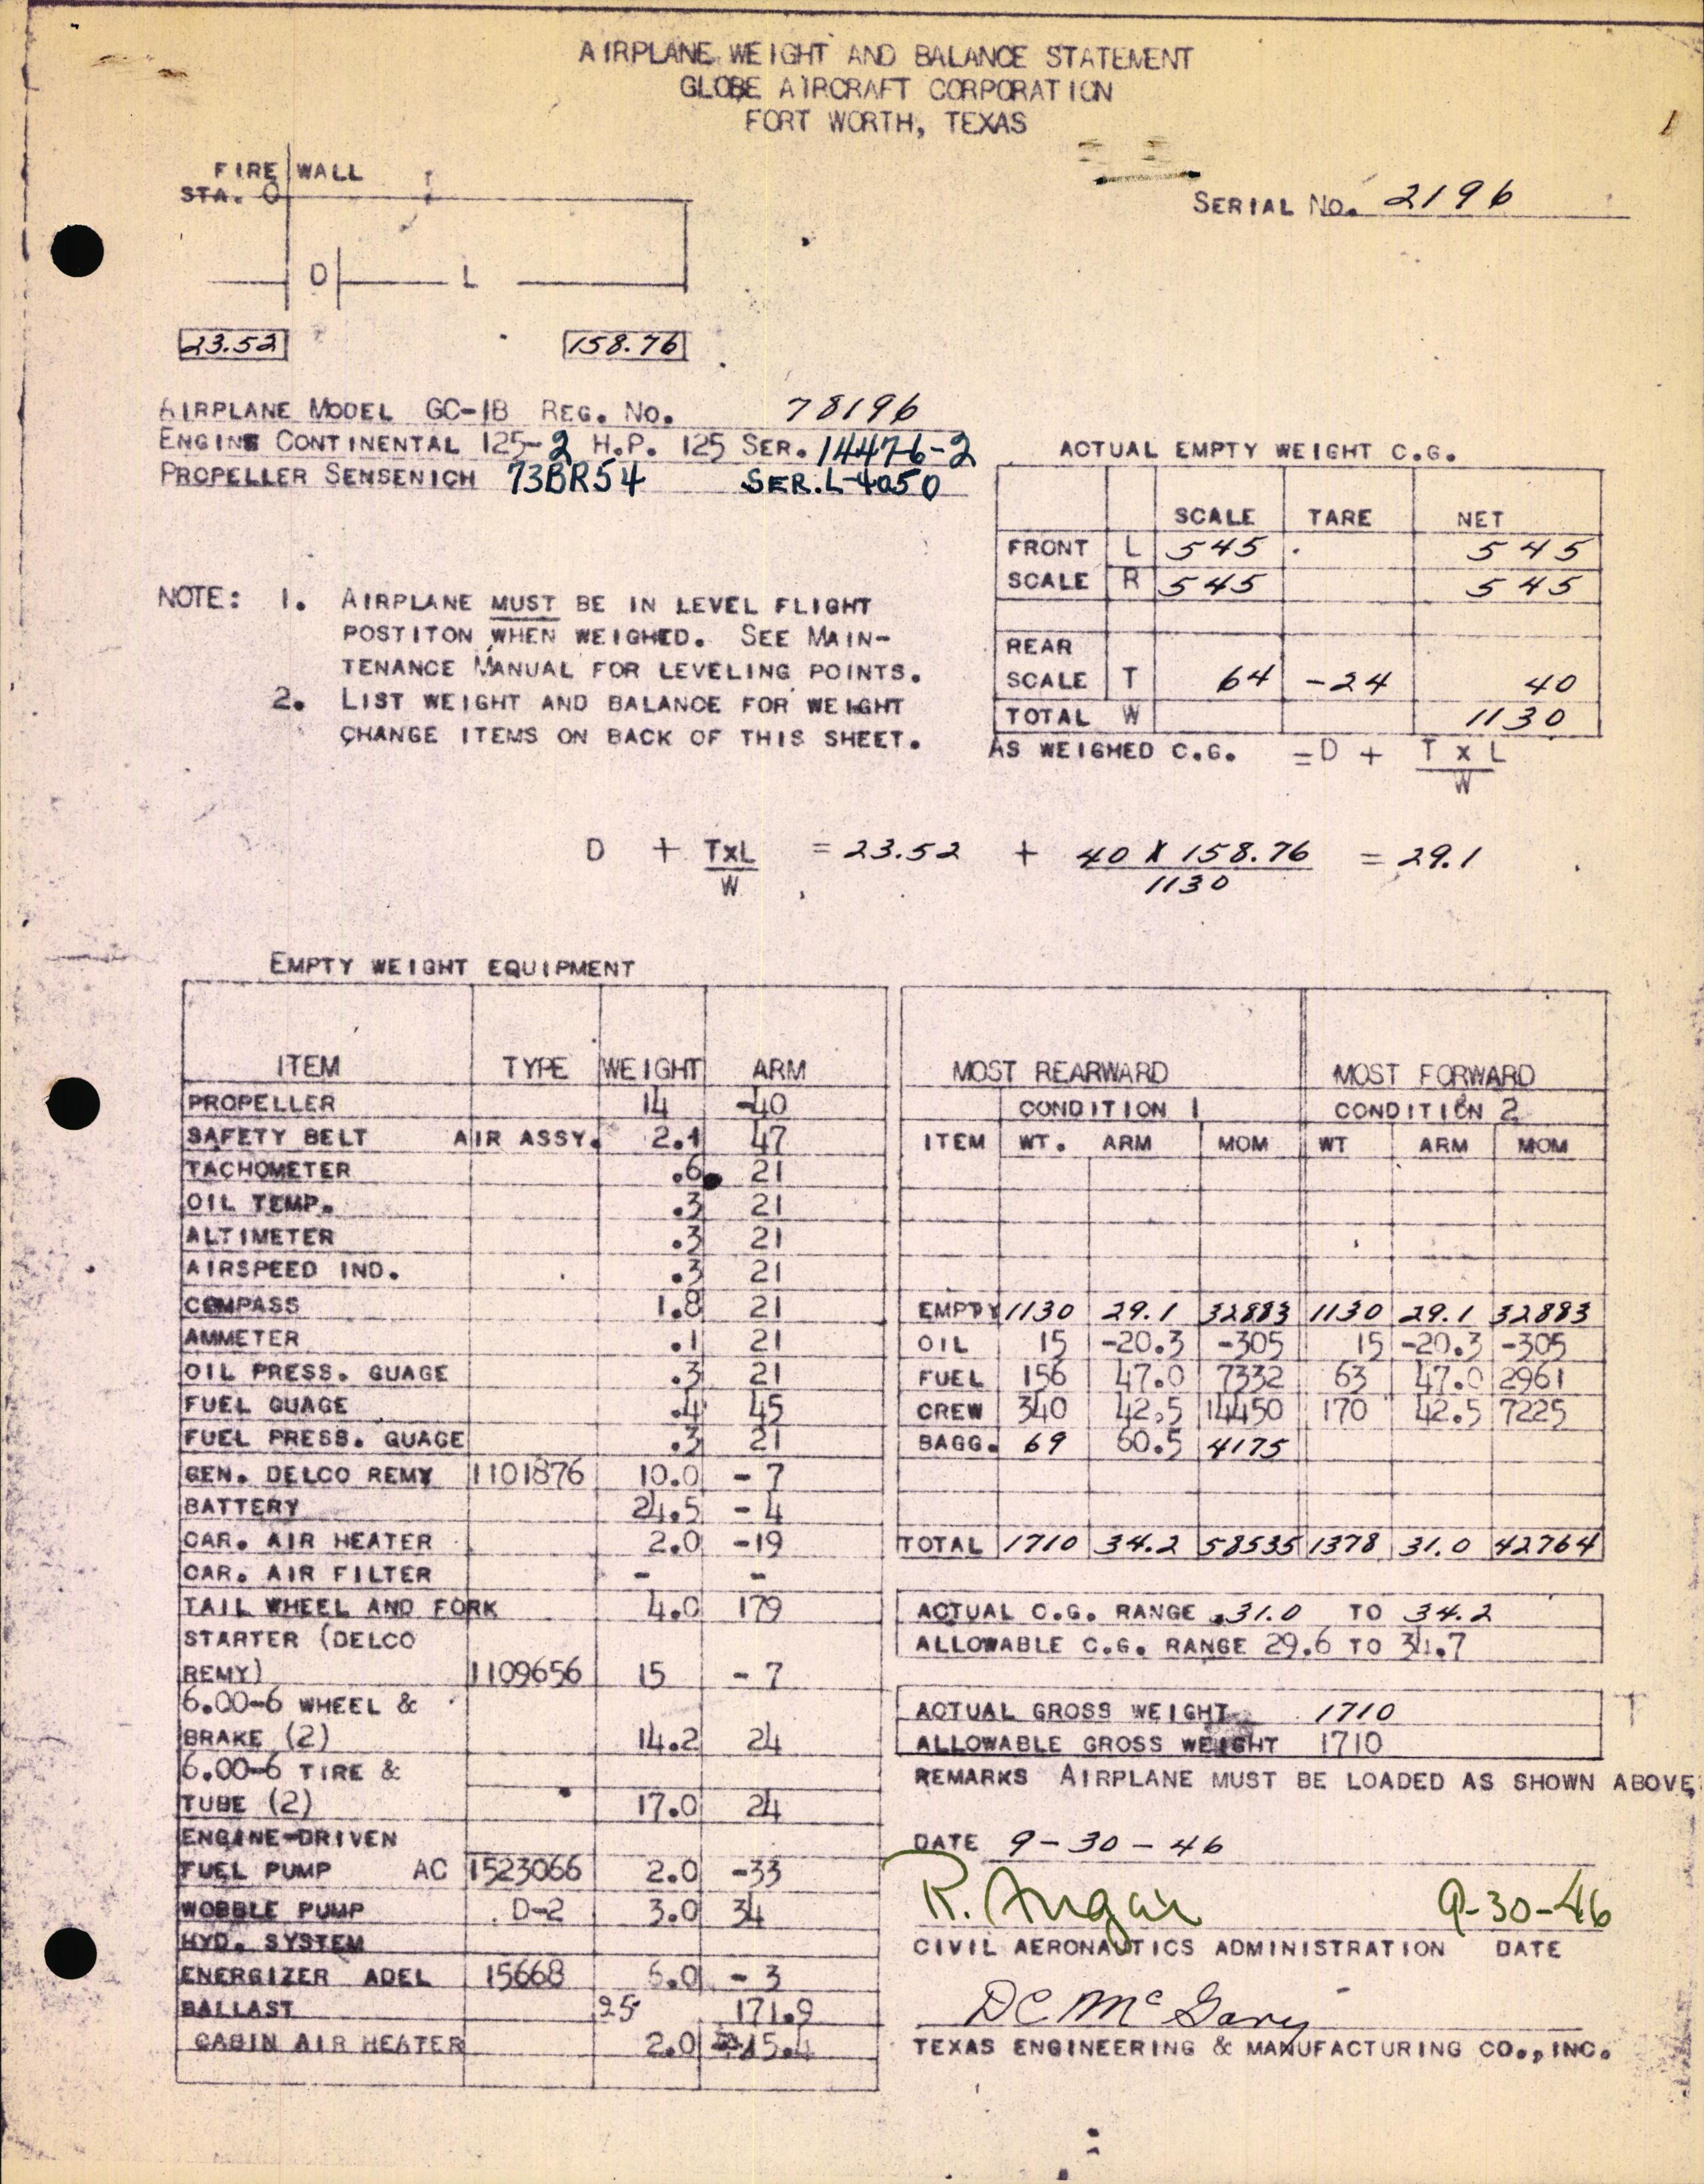 AIRPLANE WEIGHT AND BALANCE STATEMENT
GLOBE AIRCRAFT CORPORATION
FORT WORTH, TEXAS
FIRE WALL
STA. 0
SERIAL NO. 2196
D L
23.52 158.76
AIRPLANE MODEL GC-1B REG. NO. 78196
ENGINE CONTINENTAL 125-2 H.P. 125 SER. 14476-2
PROPELLER SENSENICH 73BR54 SER. L-4050
ACTUAL EMPTY WEIGHT C.G.
SCALE TARE NET
FRONT L 545 545
SCALE R 545 545
REAR
SCALE T 64 -24 40
TOTAL W 1130
AS WEIGHED C.G. = D + T X L
W
NOTE: 1. AIRPLANE MUST BE IN LEVEL FLIGHT
POSTITON WHEN WEIGHED. SEE MAIN-
TENANCE MANUAL FOR LEVELING POINTS.
2. LIST WEIGHT AND BALANCE FOR WEIGHT
CHANGE ITEMS ON BACK OF THIS SHEET.
D + TXL = 23.52 + 40 X 158.76 = 29.1
W 1130
EMPTY WEIGHT EQUIPMENT
ITEM TYPE WEIGHT ARM
PROPELLER 14 -40
SAFETY BELT AIR ASSY. 2.1 47
TACHOMETER .6 21
OIL TEMP. .3 21
ALTIMETER .3 21
AIRSPEED IND. .3 21
COMPASS 1.8 21
AMMETER .1 21
OIL PRESS. GUAGE .3 21
FUEL GUAGE .4 45
FUEL PRESS. GUAGE .3 21
GEN. DELCO REMY 1101876 10.0 - 7
BATTERY 24.5 - 4
CAR. AIR HEATER 2.0 -19
CAR. AIR FILTER - -
TAIL WHEEL AND FORK 4.0 179
STARTER (DELCO
REMY) 1109656 15 - 7
6.00-6 WHEEL &
BRAKE (2) 14.2 24
6.00-6 TIRE &
TUBE (2) 17.0 24
ENGINE-DRIVEN
FUEL PUMP AC 1523066 2.0 -33
WOBBLE PUMP D-2 3.0 34
HYD. SYSTEM
ENERGIZER ADEL 15668 6.0 - 3
BALLAST 25 171.9
CABIN AIR HEATER 2.0 15.4
MOST REARWARD MOST FORWARD
CONDITION 1 CONDITION 2
ITEM WT. ARM MOM WT ARM MOM
EMPTY 1130 29.1 32883 1130 29.1 32883
OIL 15 -20.3 -305 15 -20.3 -305
FUEL 156 47.0 7332 63 47.0 2961
CREW 340 42.5 14450 170 42.5 7225
BAGG. 69 60.5 4175
TOTAL 1710 34.2 58535 1378 31.0 42764
ACTUAL C.G. RANGE 31.0 TO 34.2
ALLOWABLE C.G. RANGE 29.6 TO 34.7
ACTUAL GROSS WEIGHT 1710
ALLOWABLE GROSS WEIGHT 1710
REMARKS AIRPLANE MUST BE LOADED AS SHOWN ABOVE
DATE 9-30-46
R. 9-30-46
CIVIL AERONAUTICS ADMINISTRATION DATE
DC McGary
TEXAS ENGINEERING & MANUFACTURING CO., INC.